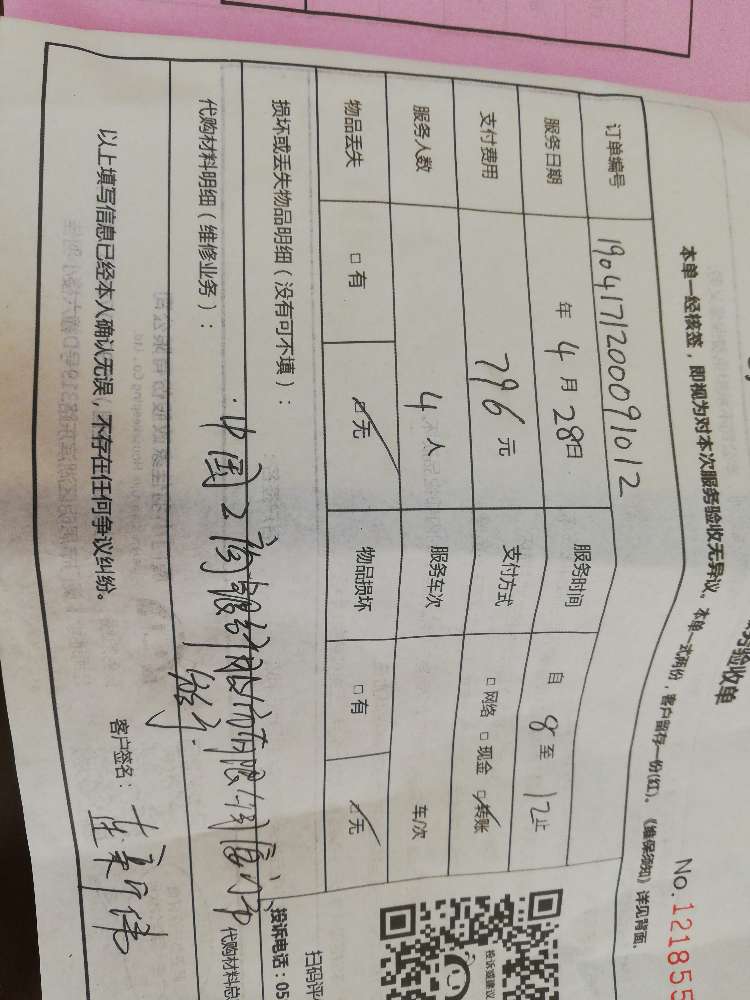 务验收单
No.121855
本单一经核签，即视为对本次服务验收无异议。本单一式两份，客户留存一份(红)。《维保须知》详见背面.
订单编号 190417120009 1012
服务日期 年 4 月 28 日 服务时间 自 8 至 12 止
支付费用 796 元 支付方式 □ 网络 □ 现金 ☑ 转账
服务人数 4 人 服务车次 车/次
物品丢失 □ 有 ☑ 无 物品损坏 □ 有 ☑ 无
损坏或丢失物品明细（没有可不填）：
中国工商银行股份有限公司厦门
代购材料明细（维修业务）：
代购材料总
以上填写信息已经本人确认无误，不存在任何争议纠纷。
客户签名：
扫码评
投诉电话：05
投诉或建议